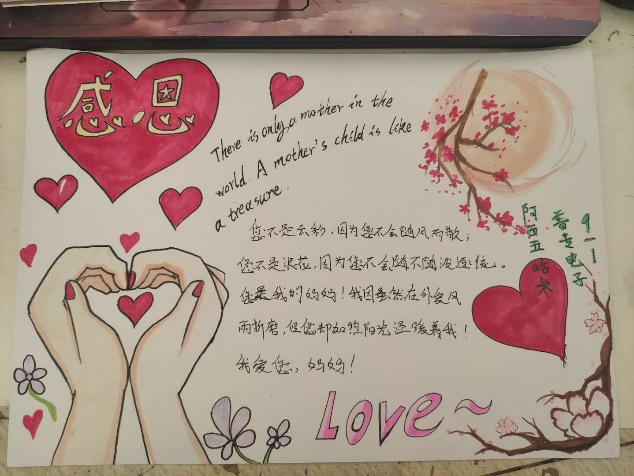 感恩
There is only a mother in the
world A mother's child is like
a treasure.
您不是云彩，因为您不会随风而散；
您不是浪花，因为您不会随不随波逐流。
您是我的妈妈！我因虽然在外受风
雨折磨，但您却如阳光温暖着我！
我爱您，妈妈！
LOVE~
9-1
普走电子
阿西五